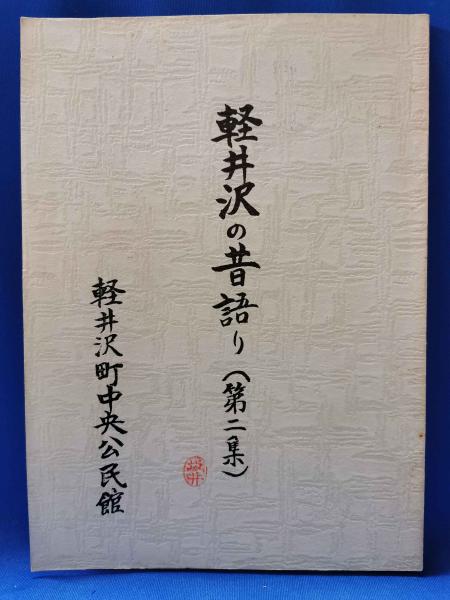 軽井沢の昔語り(第二集)
軽井沢町中央公民館